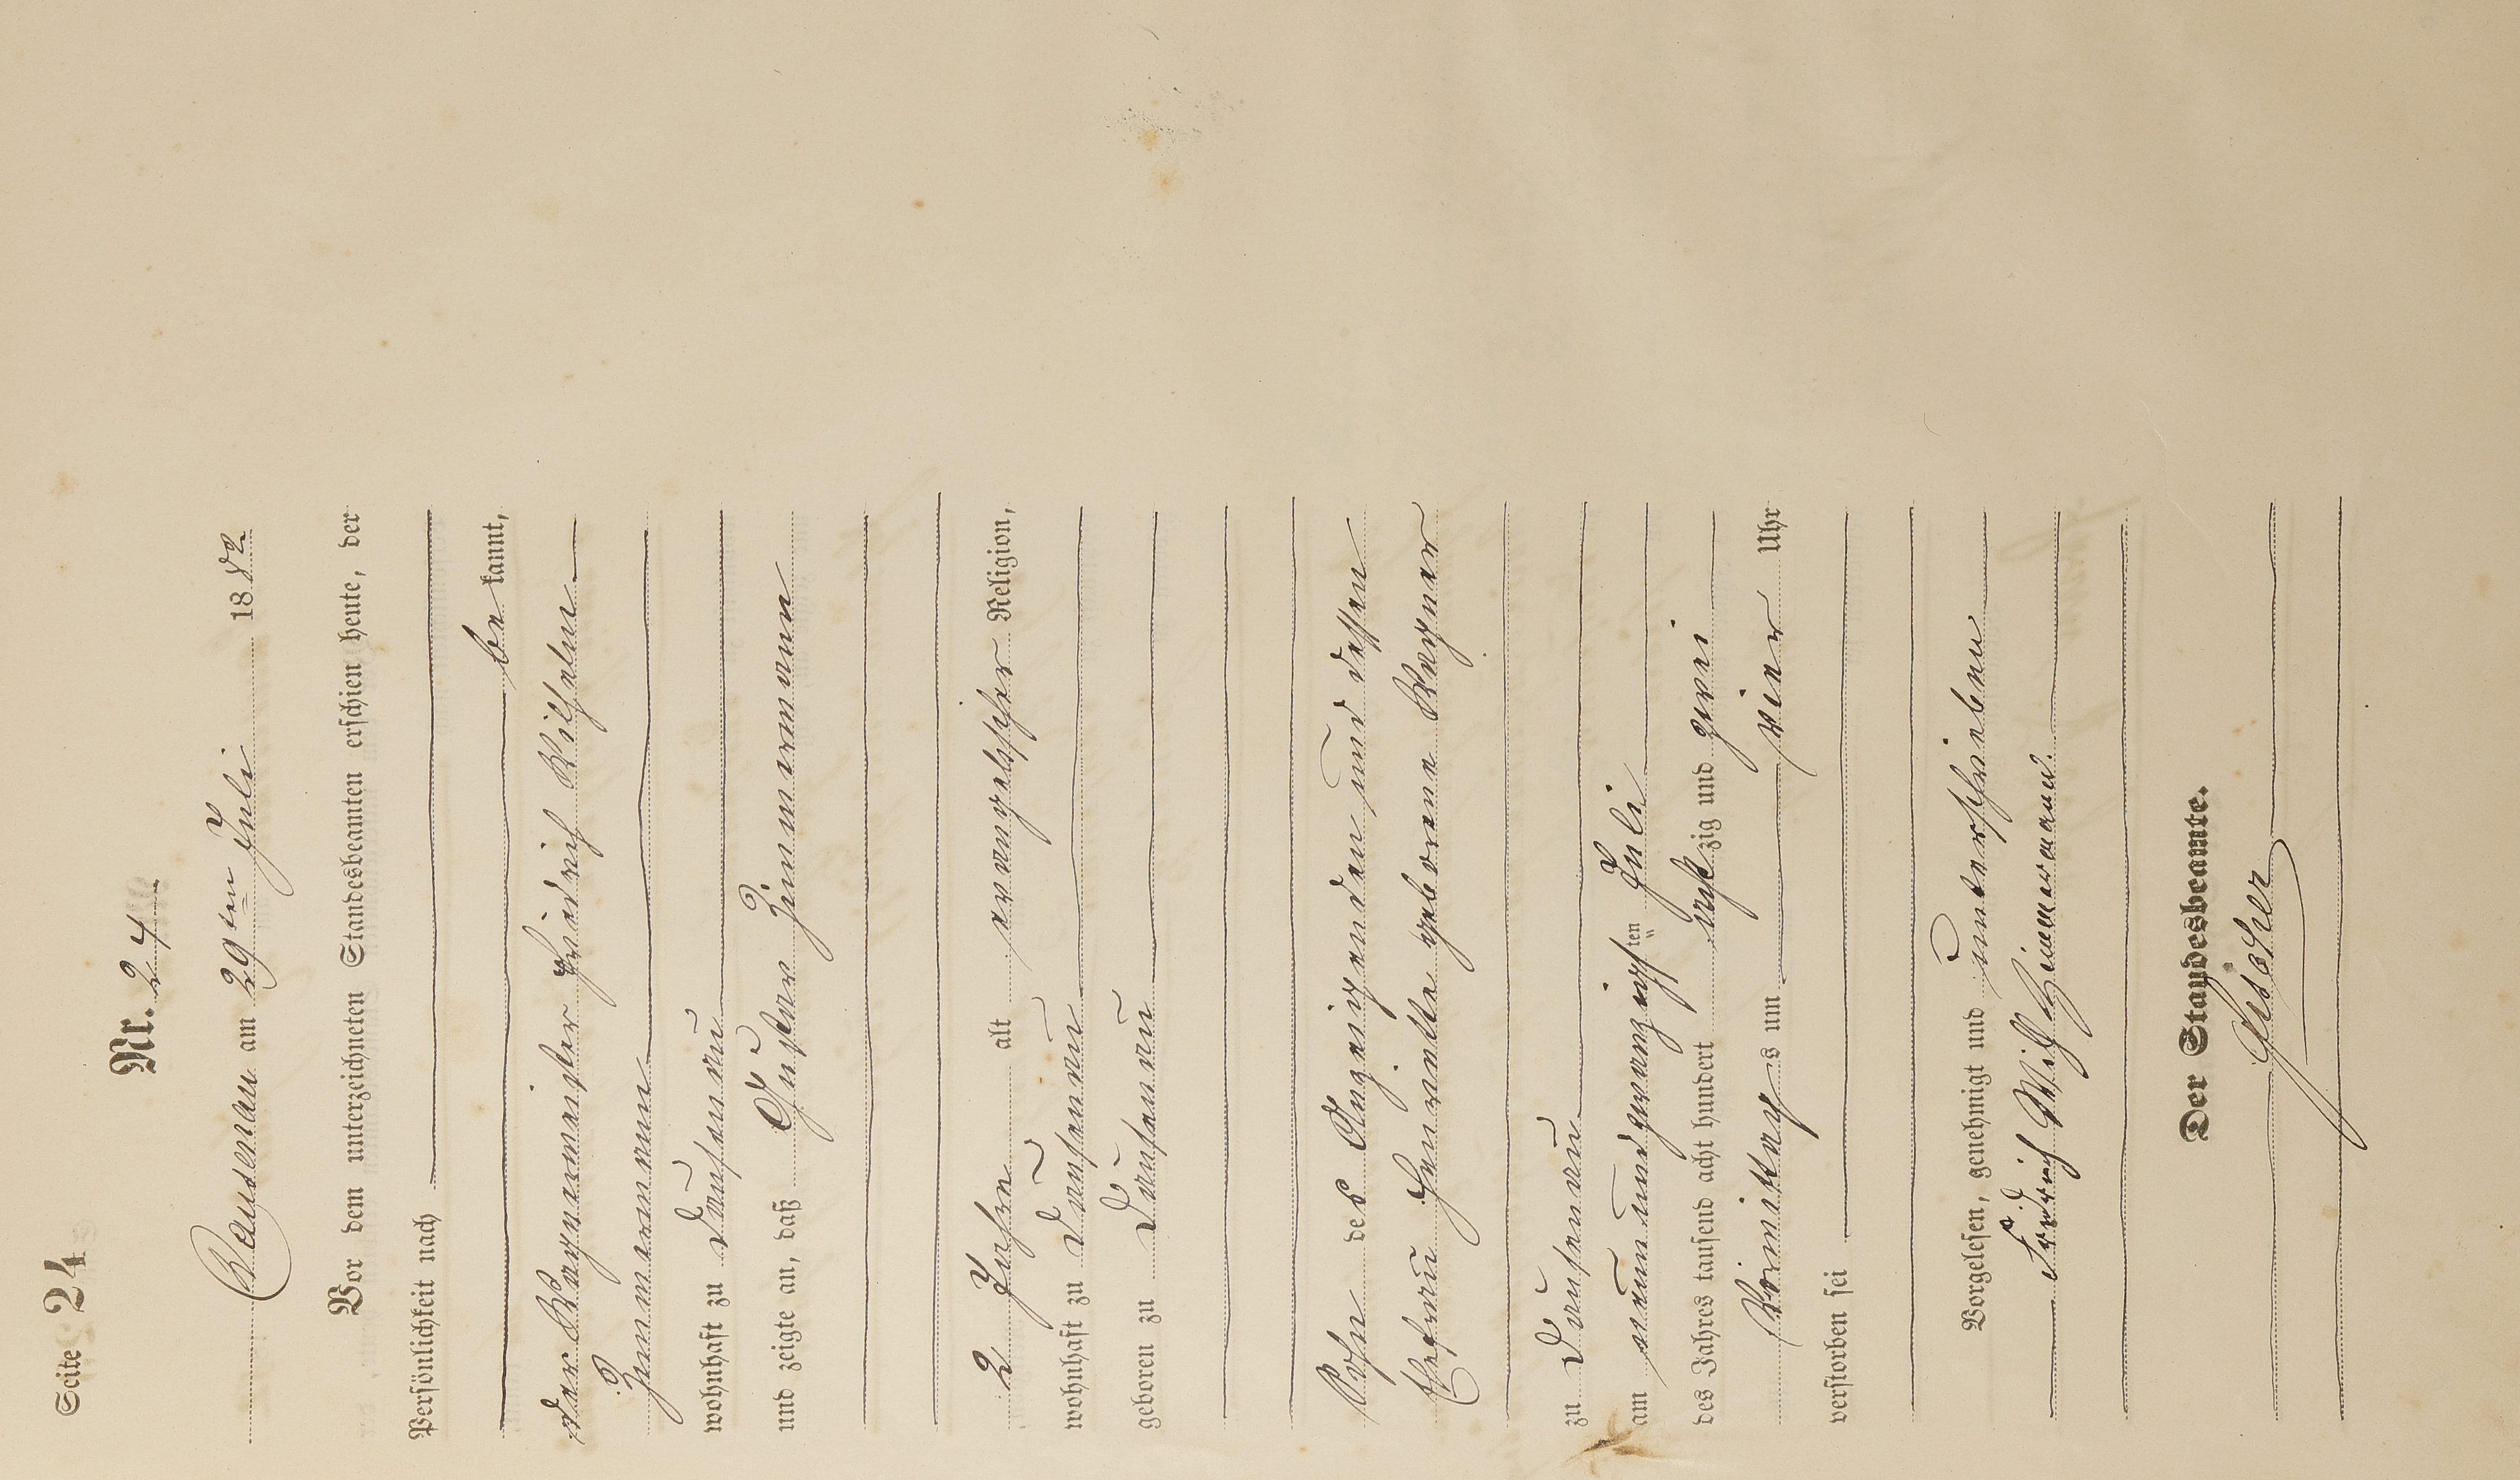 Seite 24
Nr. 24
Dausenau am 29ten Juli 1882
Vor dem unterzeichneten Standesbeamten erschien heute, der
Persönlichkeit nach
bekannt,
der Wagnermeister Friedrich Wilhelm
Zimmermann
wohnhaft zu Dausenau
und zeigte an, daß Gustav Zimmermann
2 Jahre alt evangelischer Religion,
wohnhaft zu Dausenau
geboren zu Dausenau
Sohn des Anzeigenden und dessen
Ehefrau Henriette geborene Wagner
zu Dausenau
am neunundzwanzigsten Juli
des Jahres tausend acht hundert achtzig und zwei
Vormittags um vier Uhr
verstorben sei
Vorgelesen, genehmigt und unterschrieben
Friedrich Wilh Zimmermann
Der Standesbeamte.